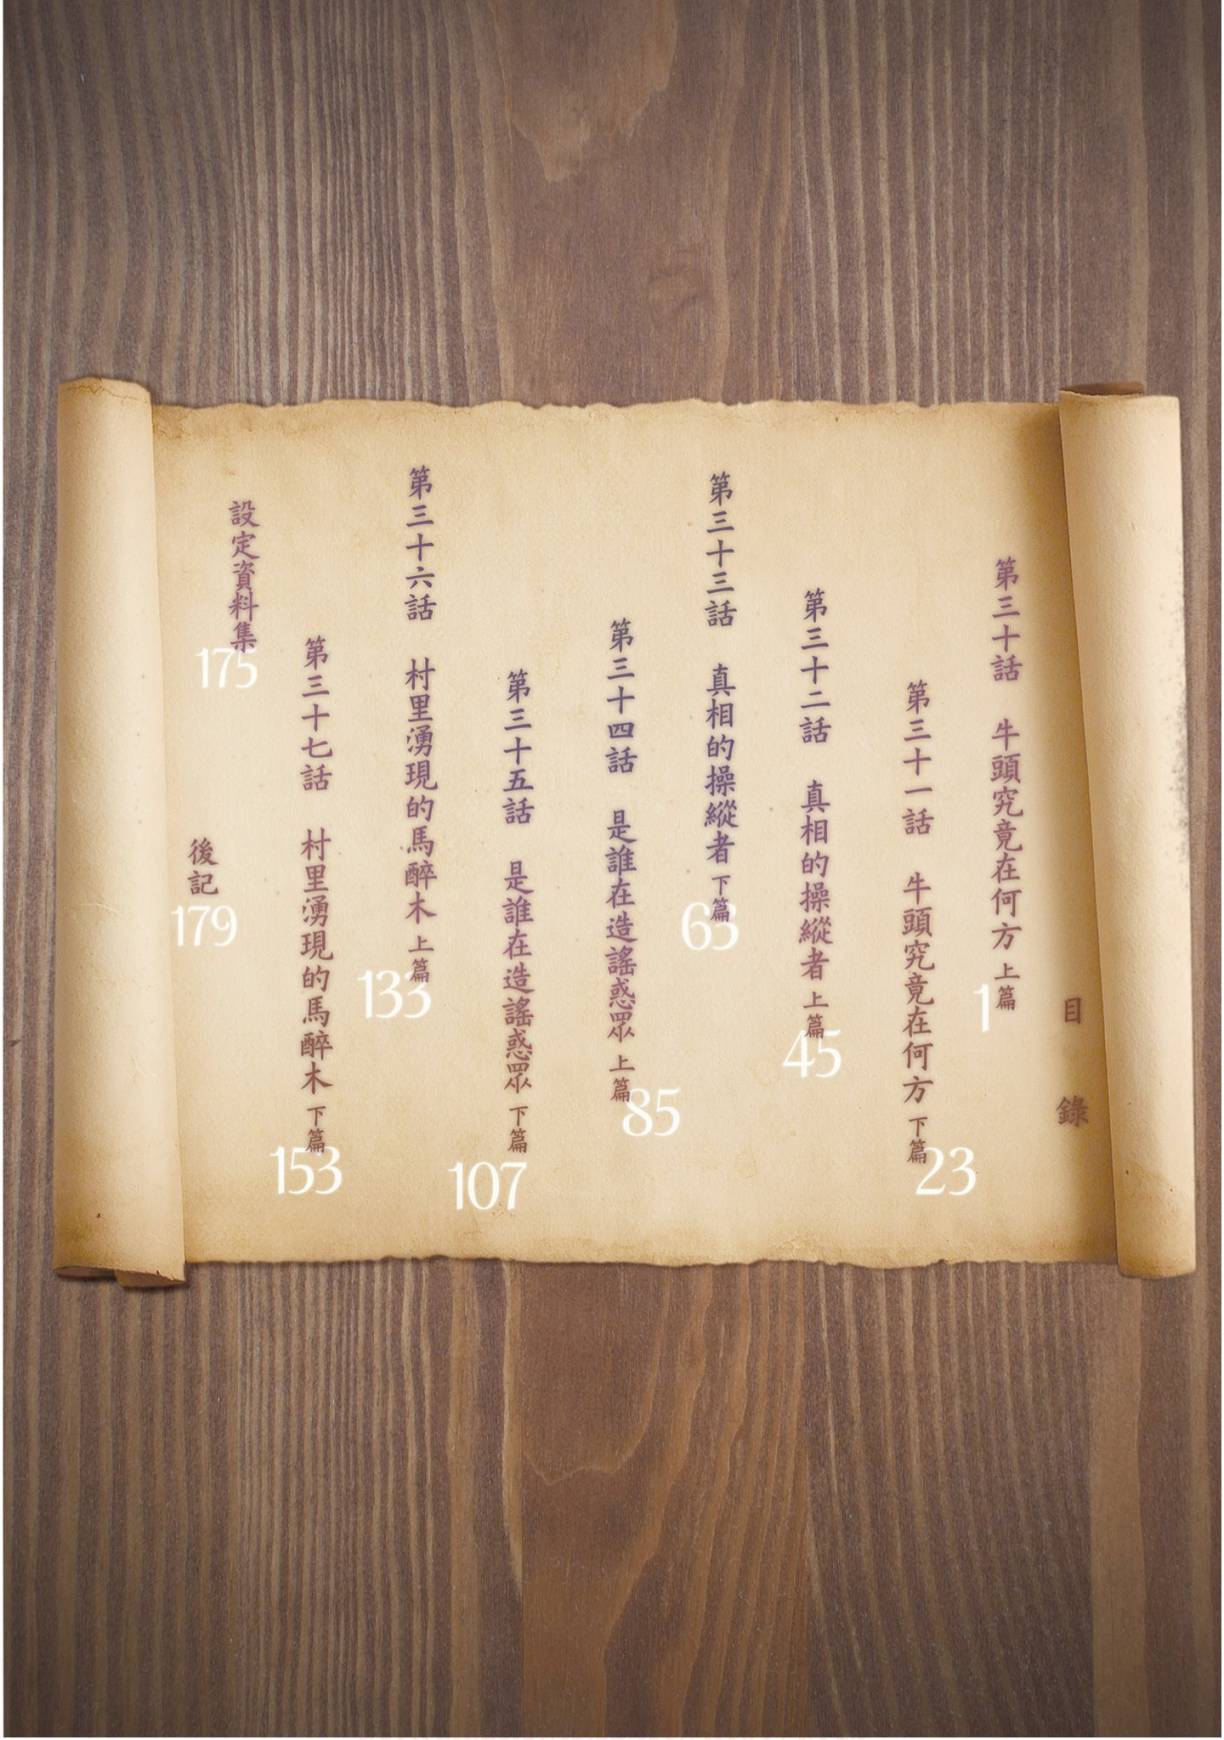 目錄
第三十話 牛頭究竟在何方 上篇
1
第三十一話 牛頭究竟在何方 下篇
23
第三十二話 真相的操縱者 上篇
45
第三十三話 真相的操縱者 下篇
63
第三十四話 是誰在造謠惑眾 上篇
85
第三十五話 是誰在造謠惑眾 下篇
107
第三十六話 村里湧現的馬醉木 上篇
133
第三十七話 村里湧現的馬醉木 下篇
153
設定資料集
175
後記
179